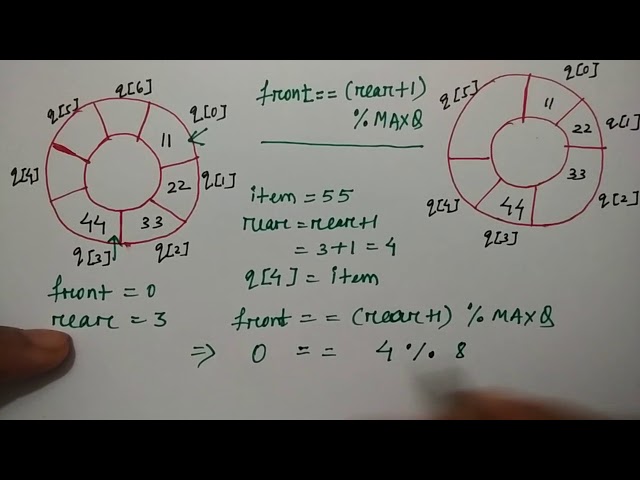 q[6]
q[5]
q[0]
11
q[4]
22
q[1]
44
33
q[3]
q[2]
front = 0
rear = 3
front == (rear+1)
% MAXQ
item = 55
rear = rear+1
= 3+1 = 4
q[4] = item
front == (rear+1) % MAXQ
⇒ 0 == 4 % 8
q[5]
q[0]
11
22
q[1]
33
q[4]
44
q[2]
q[3]